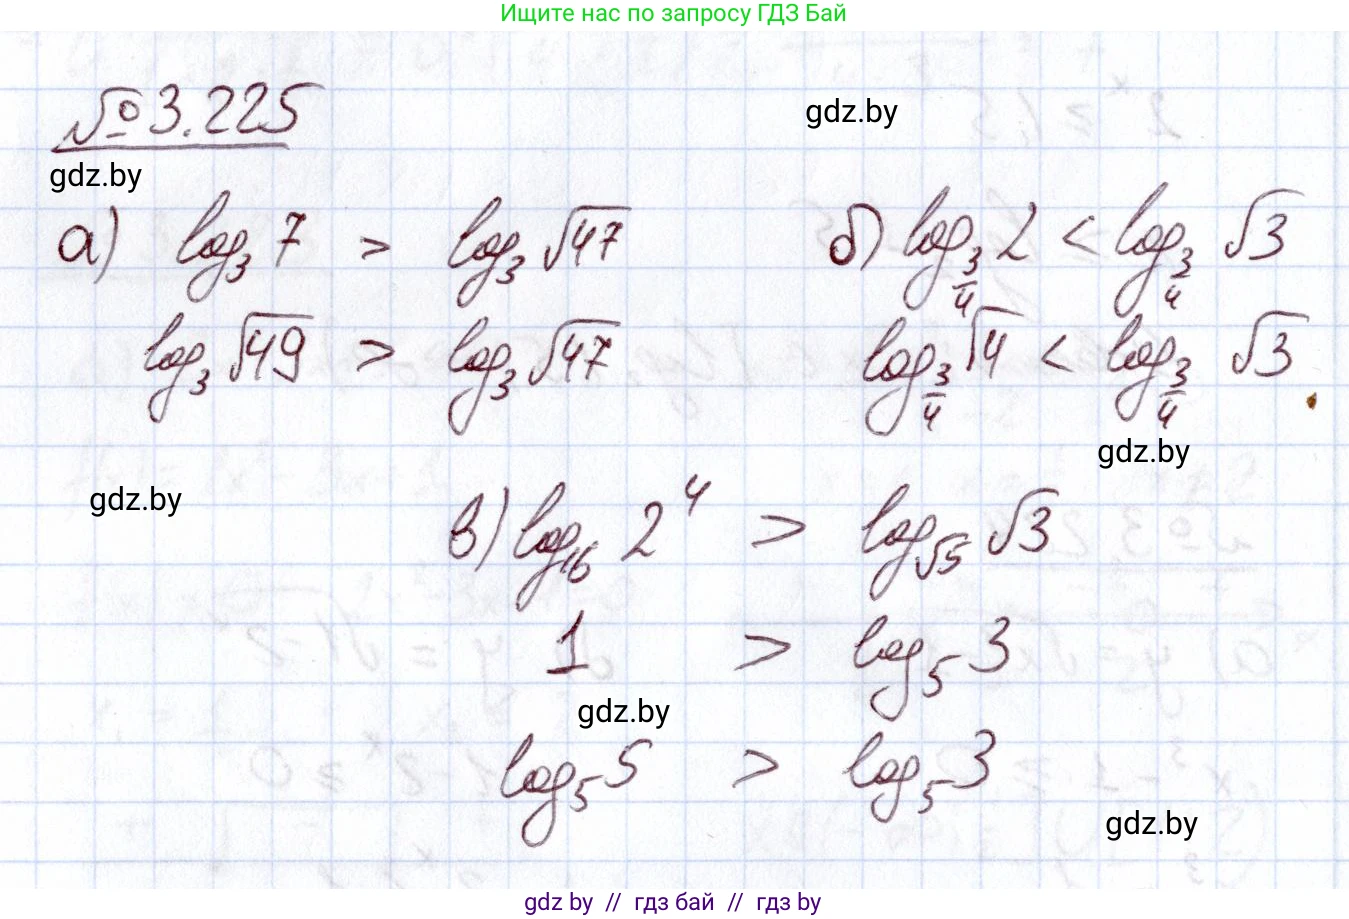 Ищите нас по запросу ГДЗ Бай
№ 3.225
gdz.by
gdz.by
а) log₃ 7 > log₃ √47
log₃ √49 > log₃ √47
б) log_{3/4} 2 < log_{3/4} √3
log_{3/4} √4 < log_{3/4} √3
gdz.by
gdz.by
в) log₁₆ 2⁴ > log_{√5} √3
1 > log₅ 3
gdz.by
log₅ 5 > log₅ 3
gdz.by
gdz.by // гдз бай // гдз by